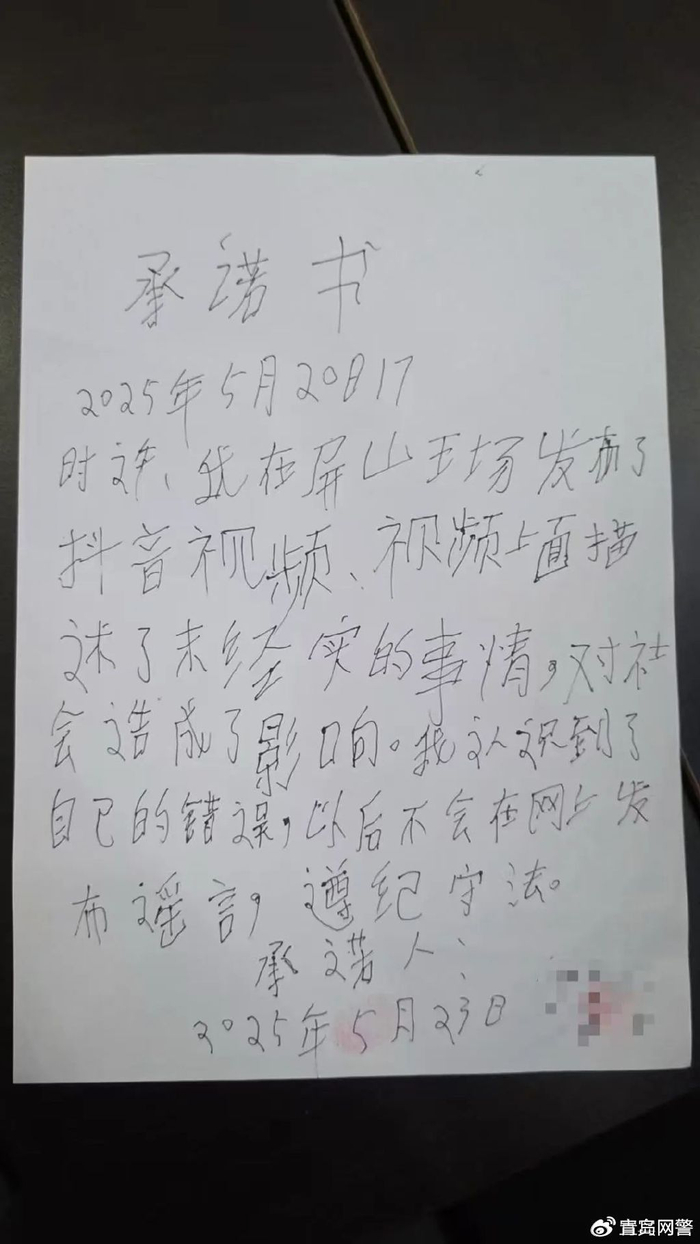 承诺书
2025年5月20日17
时许、我在屏山王场发布了
抖音视频、视频上面描
述了未经实的事情,对社
会造成了影响。我认识到了
自己的错误,以后不会在网上发
布谣言,遵纪守法。
承诺人:
2025年5月23日
宜宾网警